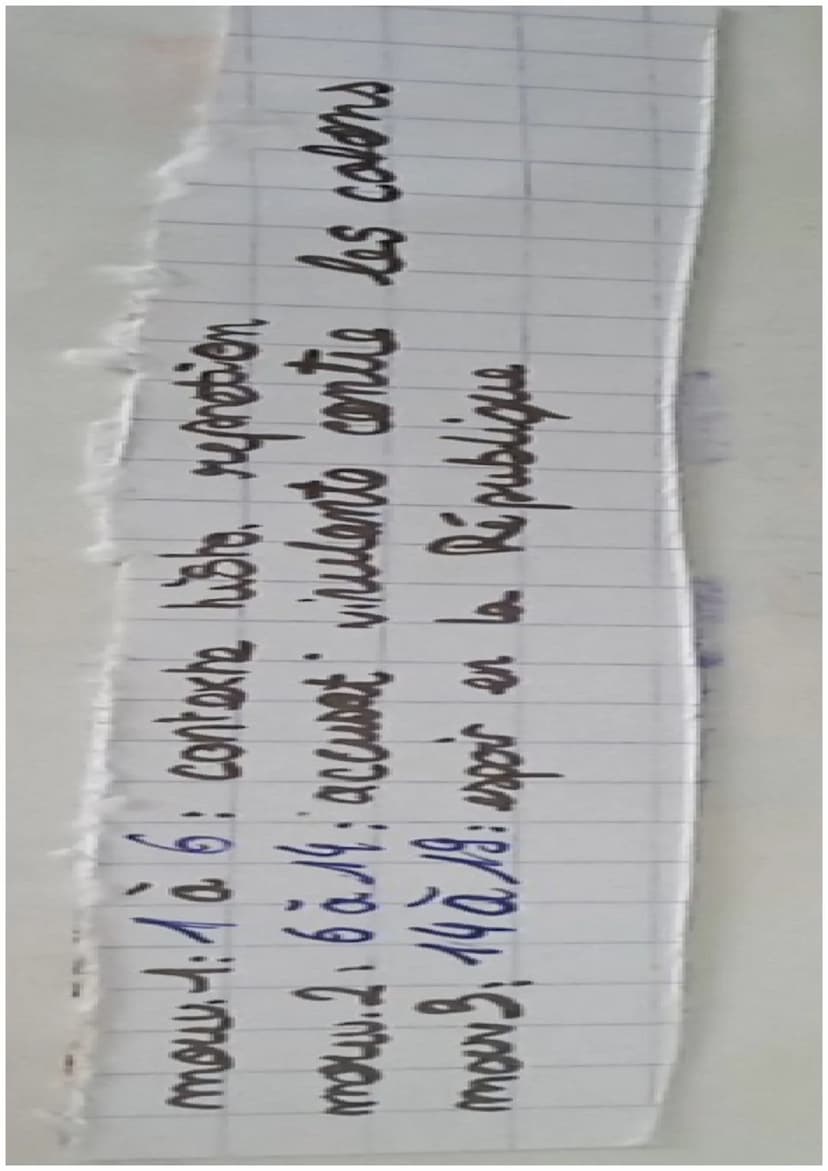 mouv.1: 1 à 6: contexte histo. repretion
mouv.2: 6 à 14: accusat° virulente contre les colons
mouv3: 14 à 19: espoir en la République